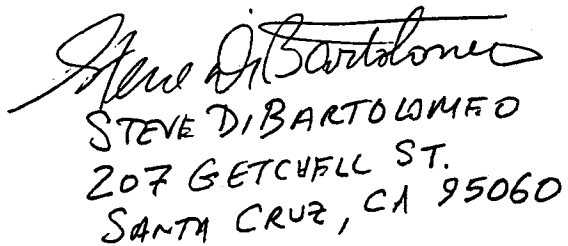 Steve DiBartolomeo
STEVE DIBARTOLOMEO
207 GETCHELL ST.
SANTA CRUZ, CA 95060